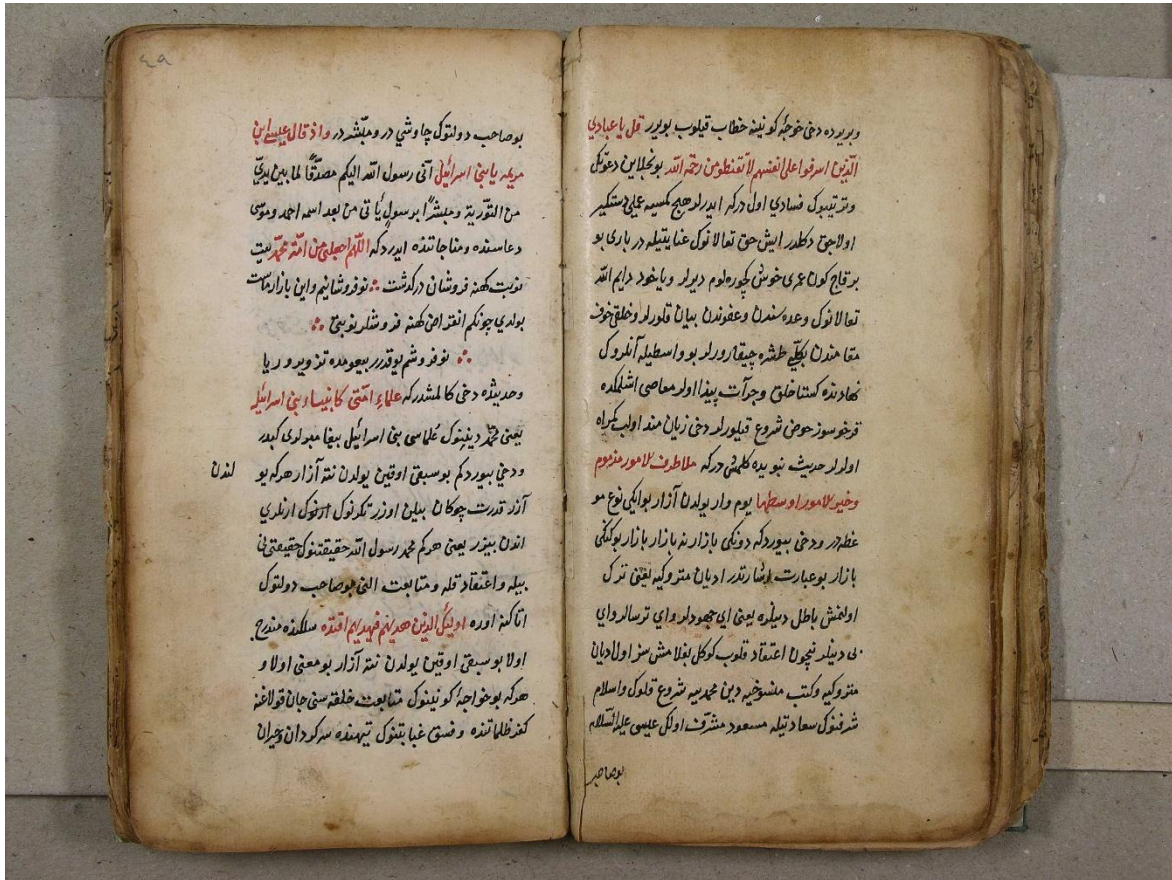 ویریوده دخی خوجۀ کونینه خطاب قیلوب بویورر قل یا عبادی
الذین اسرفوا علی انفسهم لا تقنطو من رحمة الله بونجلاین دعوتک
وترتیبوک فسادی اول درکه ایدرلر هیچ کمسیه عملی دستکیر
اولاجق دکلدر ایش حق تعالانوک عنایتیله در باری بو
بر قاچ کون عمری خوش کچوره لوم دیرلر ویا خود دایم الله
تعالانوک وعده سندن وعفوندن بیان قلورلر وخلقی خوف
مقامندن بکلّی طشره چیقارورلر بو واسطیله آنلروک
نهادنده کستاخلق وجرآت پیدا اولر معاصی اشلمکده
قرخوسوز خوض شروع قیلورلر دخی زیان مند اولب کمراه
اولرلر حدیث نبویده کلمشدر که کلا طرف الامور مذموم
وخیر الامور اوسطها یوم وار یولدن آزار بو ایکی نوع مو
عظه در ودخی بیوردکه دونکی بازارنه بازار بازار بوکنکی
بازار بو عبارت اشارتدر ادیان متروکیه یعنی ترک
اولنمش باطل دینلره یعنی ای جهودلر وای ترسالر وای
بی دینلر نیچون اعتقاد قلوب کوکل بغلامش سز اول ادیان
متروکیه وکتب منسوخیه دین محمدیه شروع قلوک واسلام
شرفنوک سعادتیله مسعود مشرف اولک عیسی علیه السلام
بو صاحب
٤٩
بو صاحب دولتوک چاوشی در ومبشر در واذ قال عیسی ابن
مریم یا بنی اسرائیل انی رسول الله الیکم مصدقًا لما بین یدیّ
من التوریة ومبشرًا برسول یأتی من بعد اسمه احمد وموسی
دعاسنده ومناجاتنده ایدرد که اللهم اجعلنی من امة محمد بیت
نوبت کهنه فروشان درکذشت ∴ نو فروشانیم واین بازار ماست
بولدی چونکم انقراض کهنه فروشلر نوبتی ∴
∴ نو فروشم یوقدرر بیعومده تزویر و ریا
وحدیثده دخی کالمشدر که علماء امتی کانبیاء بنی اسرائیل
یعنی محمد دینینوک علماسی بنی اسرائیل بیغامبرلری کبدر
ودخی بیوردکم بو سبقی اوقین یولدن نته آزار هرکه بو
لندن
آزر قدرت چوکان بیلن اوزر تکرنوک ارنوک ارنلری
اندن بیزر یعنی هرکم محمد رسول الله حقیقتنوک حقیقتی نی
بیله واعتقاد قله ومتابعت الی بو صاحب دولتوک
اتاکنه اوره اولئک الذین هدیهم فبهدیهم اقتده سلکنده مندرج
اولا بو سبقی اوقین یولدن نته آزار بو معنی اولا و
هرکه بو خواجۀ کونینوک متابعت حلقه سنی جان قولاغنه
کفر ظلماتنده وفسق غیابتنوک تیهنده سرکردان وحیران